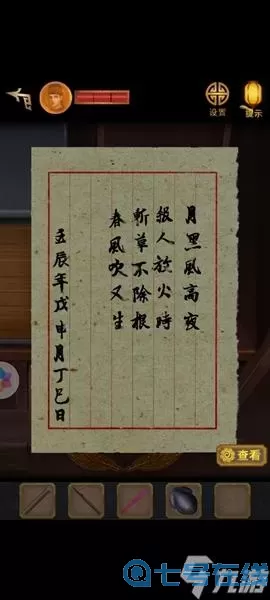 设置
提示
月黑風高夜
殺人放火時
斬草不除根
春風吹又生
壬辰年戊申月丁巳日
查看
九游
七号在线